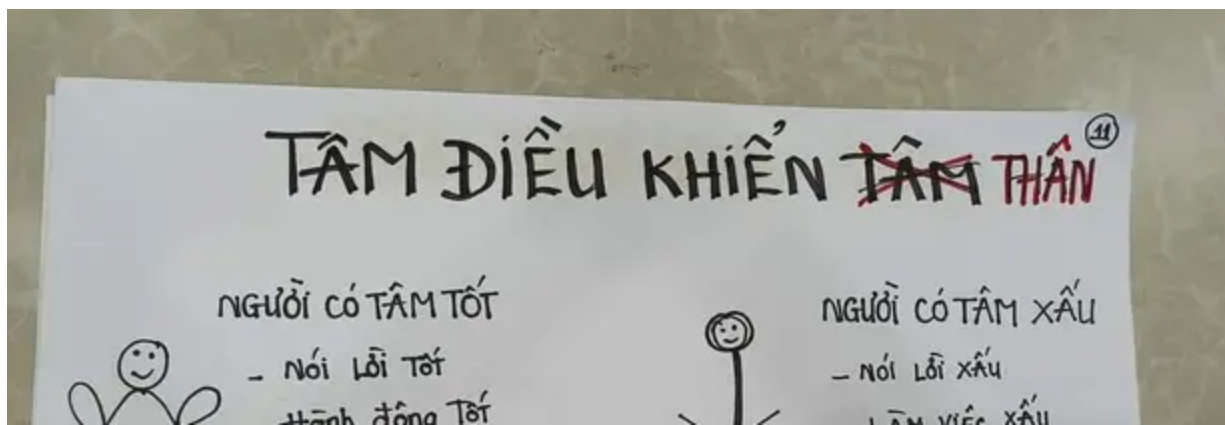 TÂM ĐIỀU KHIỂN TÂM THÂN
11
NGƯỜI CÓ TÂM TỐT
- NÓI LỜI TỐT
HÀNH ĐỘNG TỐT
NGƯỜI CÓ TÂM XẤU
- NÓI LỜI XẤU
LÀM VIỆC XẤU